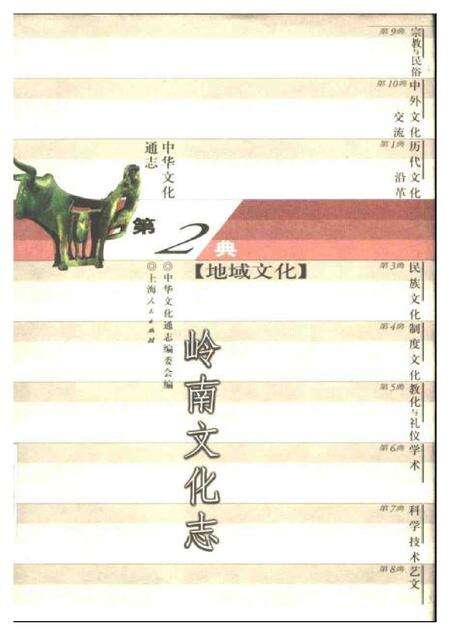 第9典
宗教与民俗
第10典
中外文化
交流
第1典
历代文化
沿革
中华文化
通志
第2典
【地域文化】
◎中华文化通志编委会编
◎上海人民出版社
岭南文化志
第3典
民族文化
第4典
制度文化
第5典
教化与礼仪
第6典
学术
第7典
科学技术
第8典
艺文